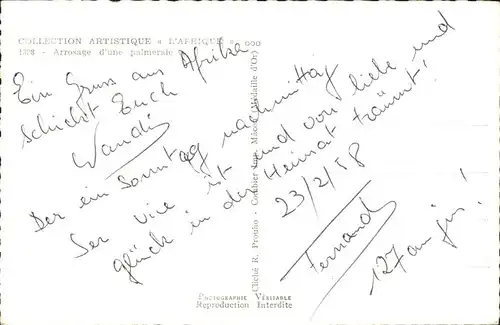 COLLECTION ARTISTIQUE « L'AFRIQUE »
1328 - Arrosage d'une palmeraie
Ein Gruss aus Afrika
schickt Euch
Wandi
Der ein Sonntag nachmittag
Ser vice ist und von liebe und
glück in der Heimat träumt!
23/2/58
Fernand
127 au jus!
Cliché R. Prouho - Combier Imp. Mâcon (Médaille d'Or)
PHOTOGRAPHIE VÉRITABLE
Reproduction Interdite